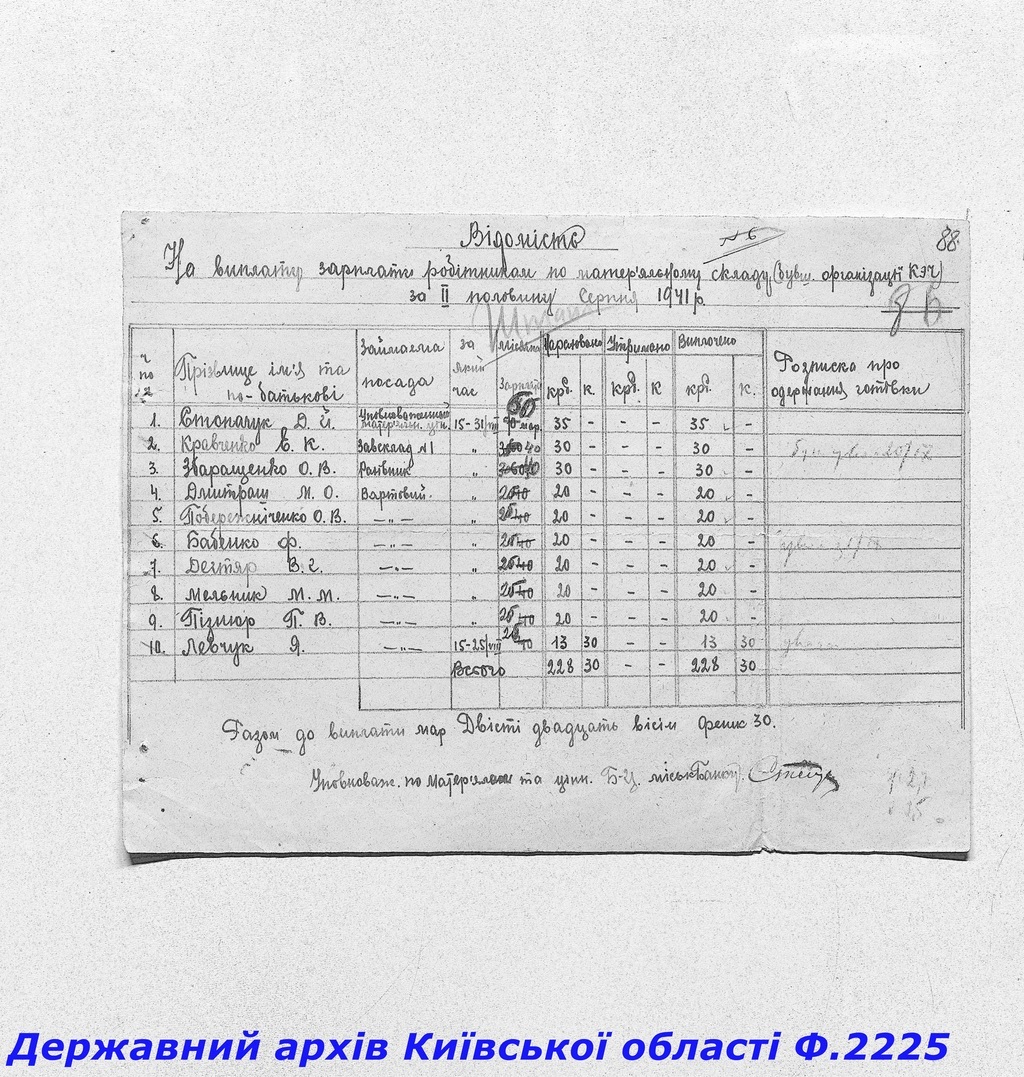 Відомість
№ 6
88.
На виплату зарплати робітникам по матер'яльному складу (бувш. організації КЭЧ)
за II половину Серпня 1941 р.
86
ч по
Прізвище ім'я та по-батькові
Займаема посада
за який час
місячна Зарплата
Нараховано
Утримано
Виплочено
Розписка про одержання готівки
крб. к. крб. к крб. к.
1. Стопачук Д. Й. Уповноваженний матер'ялн. цін. 15-31/VIII мар. 35 - - - 35 -
2. Кравченко Є. К. Завсклад №1 " 40 30 - - - 30 -
3. Зваращенко О. В. " 30 - - - 30 -
4. Дмитраш М. О. Вартовий. " 20 - - - 20 -
5. Побережніченко О. В. —"— " 20 - - - 20 -
6. Бабенко Ф. —"— " 20 - - - 20 -
7. Дегтяр В. —"— " 20 - - - 20 -
8. Мельник М. М. —"— " 20 - - - 20 -
9. П. В. —"— " 20 - - - 20 -
10. Левчук Я. —"— 15-25/VIII 13 30 - - 13 30
Всього 228 30 - - 228 30
Разом до виплати мар Двісті двадцать вісім фенік 30.
Уповноваж. по матер'ялам та цінн. Б-Ц. міськБанку
Державний архів Київської області Ф.2225